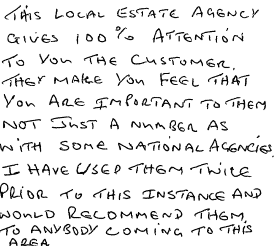 THIS LOCAL ESTATE AGENCY
GIVES 100% ATTENTION
TO YOU THE CUSTOMER.
THEY MAKE YOU FEEL THAT
YOU ARE IMPORTANT TO THEM
NOT JUST A NUMBER AS
WITH SOME NATIONAL AGENCIES.
I HAVE USED THEM TWICE
PRIOR TO THIS INSTANCE AND
WOULD RECOMMEND THEM
TO ANYBODY COMING TO THIS
AREA